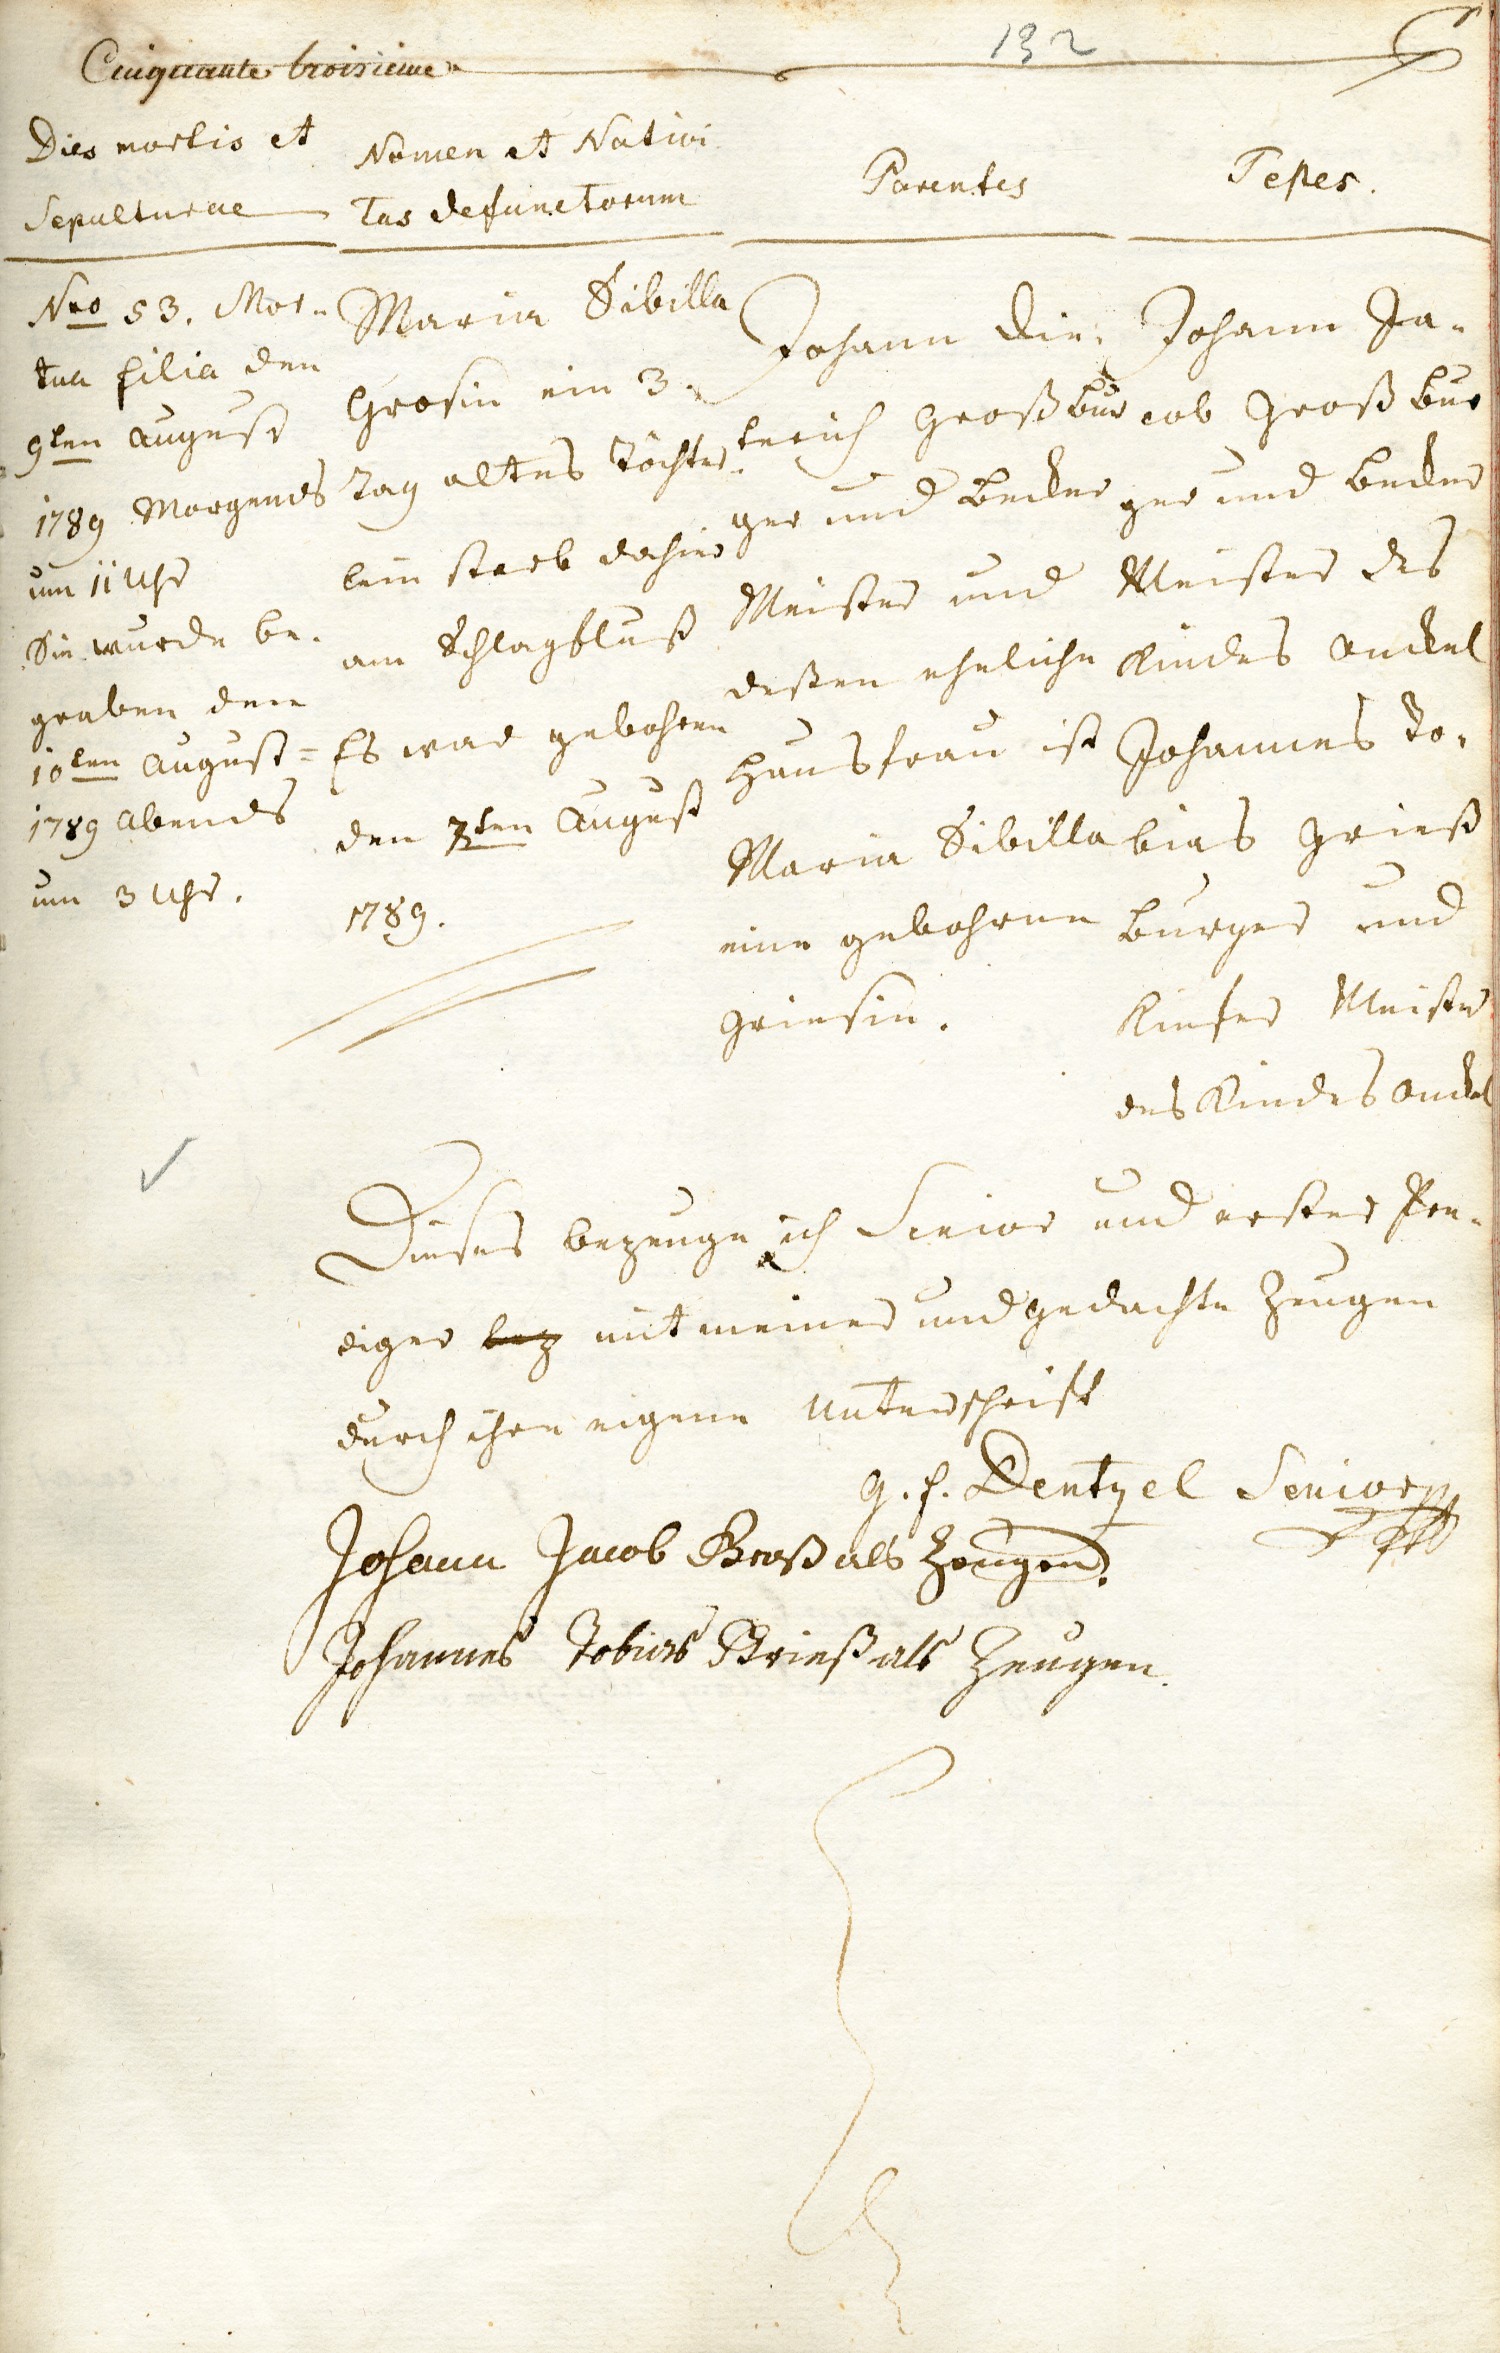 Cinquante troisieme
132
Dies mortis et
Sepulturae
Nomen et Nativi
tas defunctorum
Parentes
Testes.
Nro 53. Mor-
tua filia den
9ten August
1789 Morgends
um 11 Uhr
Sie wurde be-
graben den
10ten August=
1789 Abends
um 3 Uhr.
Maria Sibilla
Grosin ein 3
Tag altes Töchter
lein starb dahier
am Schlagfluß
Es war gebohren
den 7ten August
1789.
Johann Die-
terich Groß bür
ger und Becker
Meister und
deßen eheliche
Hausfrau ist
Maria Sibilla
eine gebohrne
Griesin.
Johann Ja-
cob Groß bur
ger und Becker
Meister des
Kindes Onckel
Johannes To-
bias Grieß
Burger und
Kiefer Meister
des Kindes Onckel
Dieses bezeuge ich Senior und erster Pre-
diger bez mit meiner und gedachte Zeugen
durch ihre eigene Unterschrift
G. F. Dentzel Senior
Johann Jacob Groß als Zeugen.
Johannes Tobias Grieß als Zeugen.